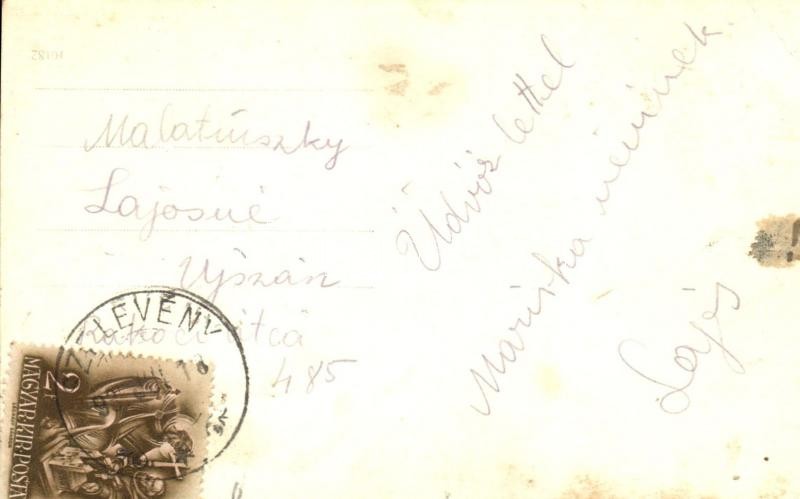 10182
Malatinszky
Lajosné
Ujszász
Rákóci utca
485
Üdvözlettel
Mariska néninek
Lajos
LEVÉNY
2
MAGYAR·KIR·POSTA